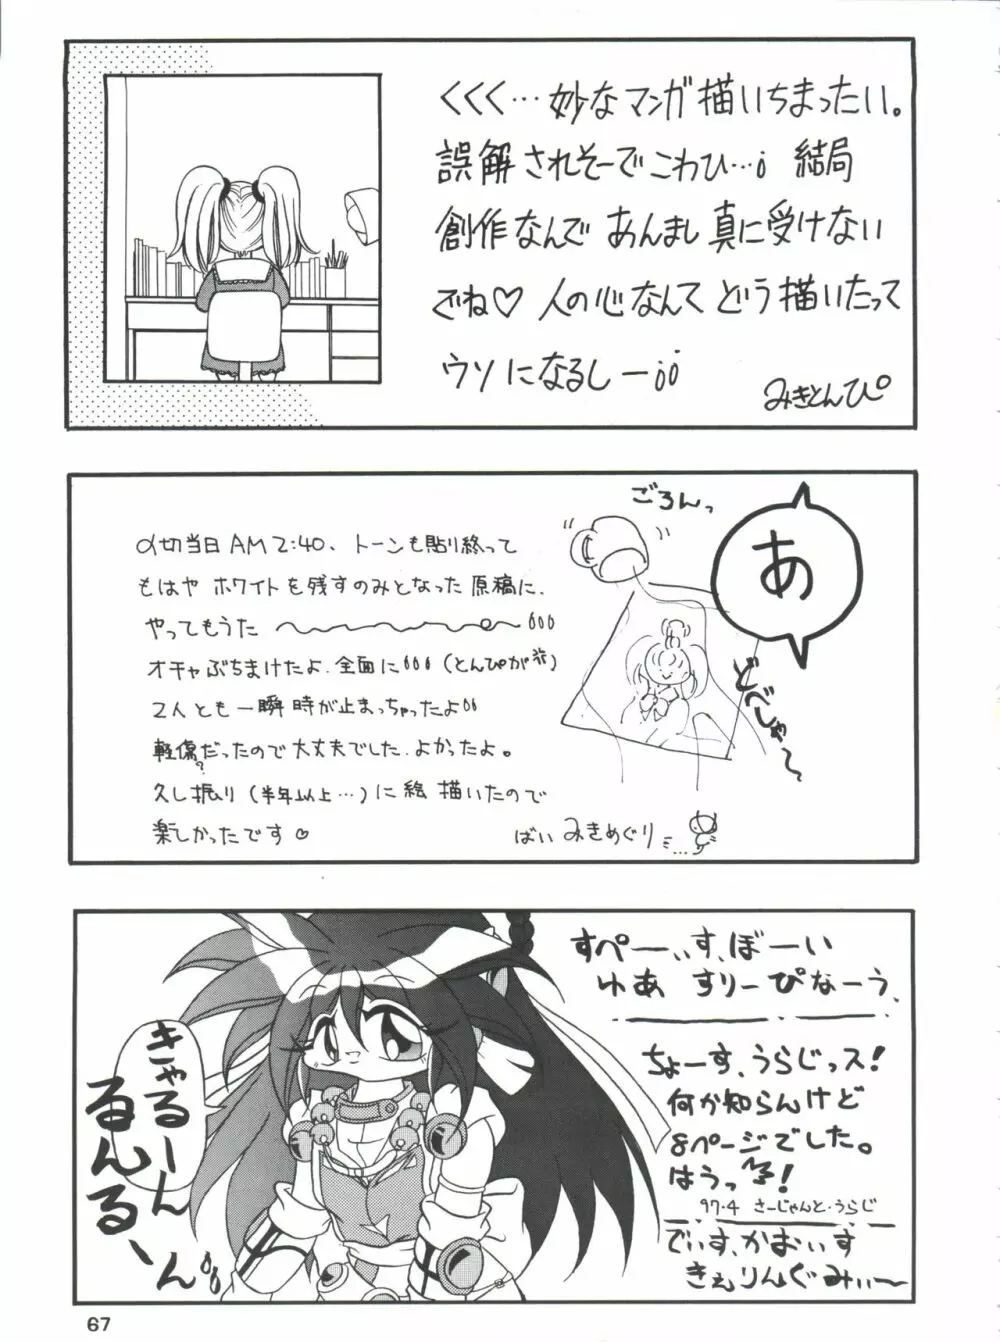 くくく…妙なマンガ描いちまったい。
誤解されそーでこわひ…¡ 結局
創作なんで あんまし真に受けない
でね♡ 人の心なんて どう描いたって
ウソになるしー¡¡
みきとんぴ
ごろんっ
あ
どべしゃ〜
〆切当日AM2:40、トーンも貼り終って
もはや ホワイトを残すのみとなった 原稿に、
やってもうた
オチャぶちまけたよ.全面に (とんぴが
2人とも一瞬 時が止まっちゃったよ
軽傷だったので大丈夫でした.よかったよ。
?
久し振り(半年以上…)に絵 描いたので
楽しかったです♡
ばい みきめぐり
すぺーす、ぼーい
ゆあ すりーぴなーう、
きゃるーん
るんるん、
ちょーす、うらじっス!
何か知らんけど
8ページでした。
はうっ
97.4 さーじゃんと・うらじ
でぃす、かおいす
きぇりんぐみぃ〜
67